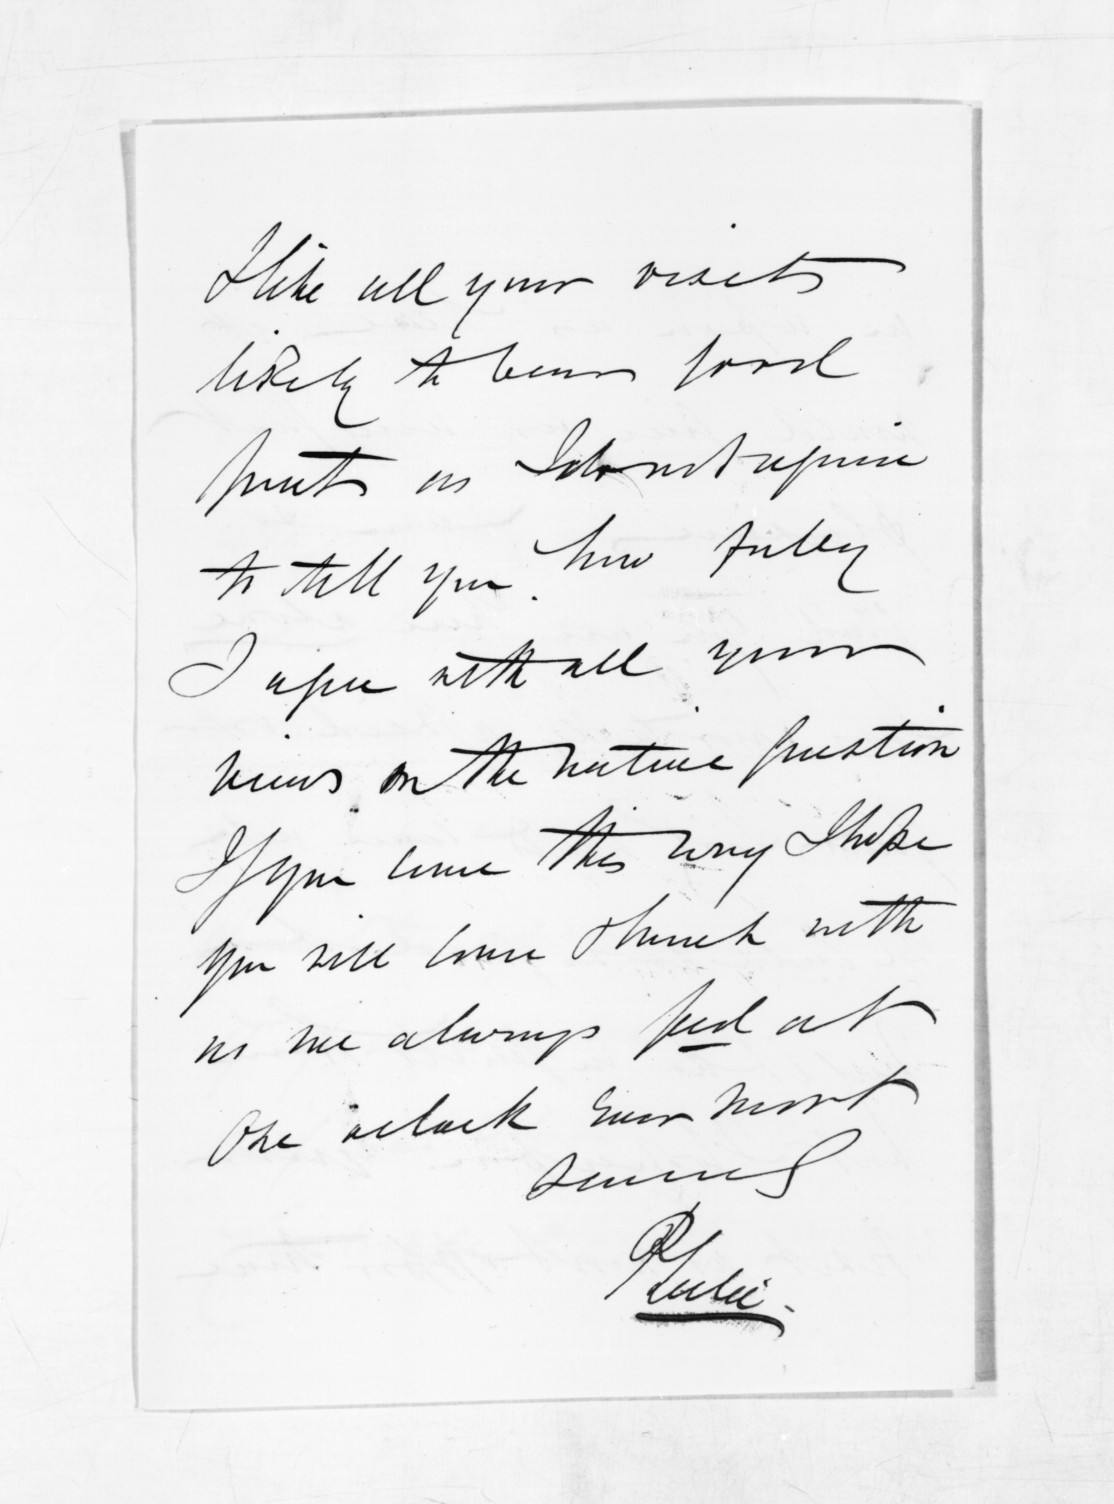 I like all your visits
likely to bear good
fruit as I do not require
to tell you. how fully
I agree with all your
views on the native question
If you come this way I hope
you will come & lunch with
us we always feed at
One o'clock Ever most
sincerely